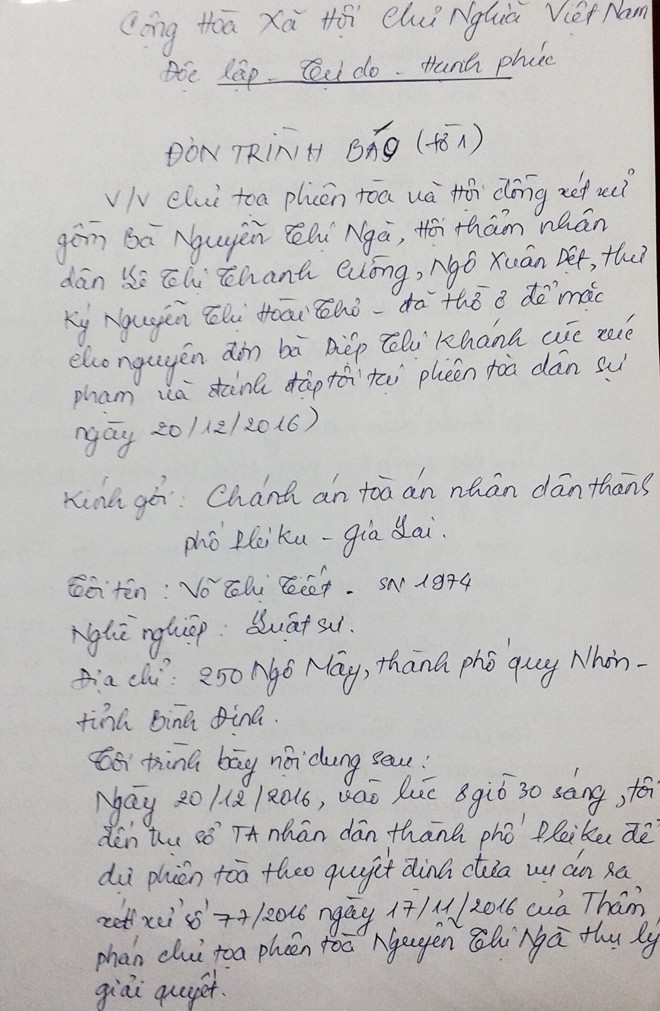 Cộng Hoà Xã Hội Chủ Nghĩa Việt Nam
Độc lập - Tự do - Hạnh phúc
ĐƠN TRÌNH BÁO (tờ 1)
V/V chủ tọa phiên tòa và Hội đồng xét xử
gồm Bà Nguyễn Thị Ngà, Hội thẩm nhân
dân Lê Thị Thanh Cường, Ngô Xuân Dệt, thư
ký Nguyễn Thị Hoài Thơ - đã thờ ơ để mặc
cho nguyên đơn bà Diếp Thị Khánh cúc xúc
phạm và đánh đập tôi tại phiên tòa dân sự
ngày 20/12/2016)
Kính gởi: Chánh án toà án nhân dân thành
phố Pleiku - Gia Lai.
Tôi tên: Võ Thị Tiết - SN 1974
Nghề nghiệp: Luật sư.
Địa chỉ: 250 Ngô Mây, thành phố quy Nhơn -
tỉnh Bình Định.
Tôi trình bày nội dung sau:
Ngày 20/12/2016, vào lúc 8 giờ 30 sáng, tôi
đến trụ sở TA nhân dân thành phố Pleiku để
dự phiên toà theo quyết định đưa vụ án ra
xét xử số 77/2016 ngày 17/11/2016 của Thẩm
phán chủ tọa phiên toà Nguyễn Thị Ngà thụ lý
giải quyết.